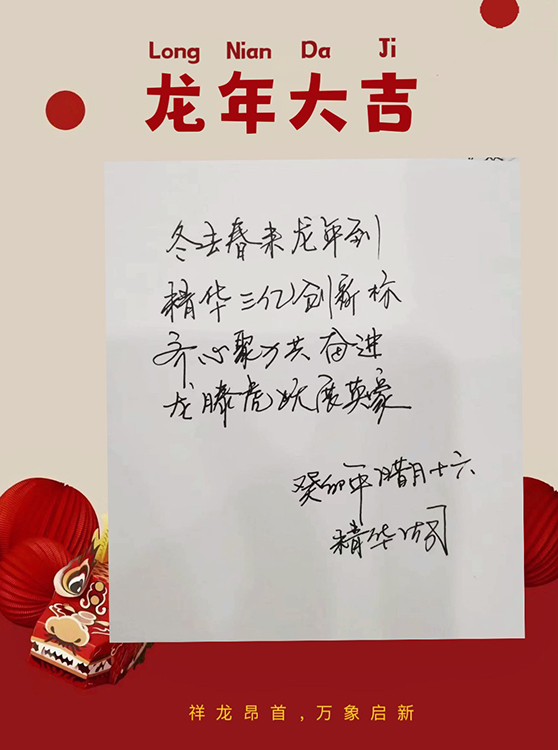 Long Nian Da Ji
龙年大吉
冬去春来龙年到
精华三亿创新标
齐心聚力共奋进
龙腾虎跃展英豪
癸卯年腊月十六
精华公司
祥龙昂首,万象启新